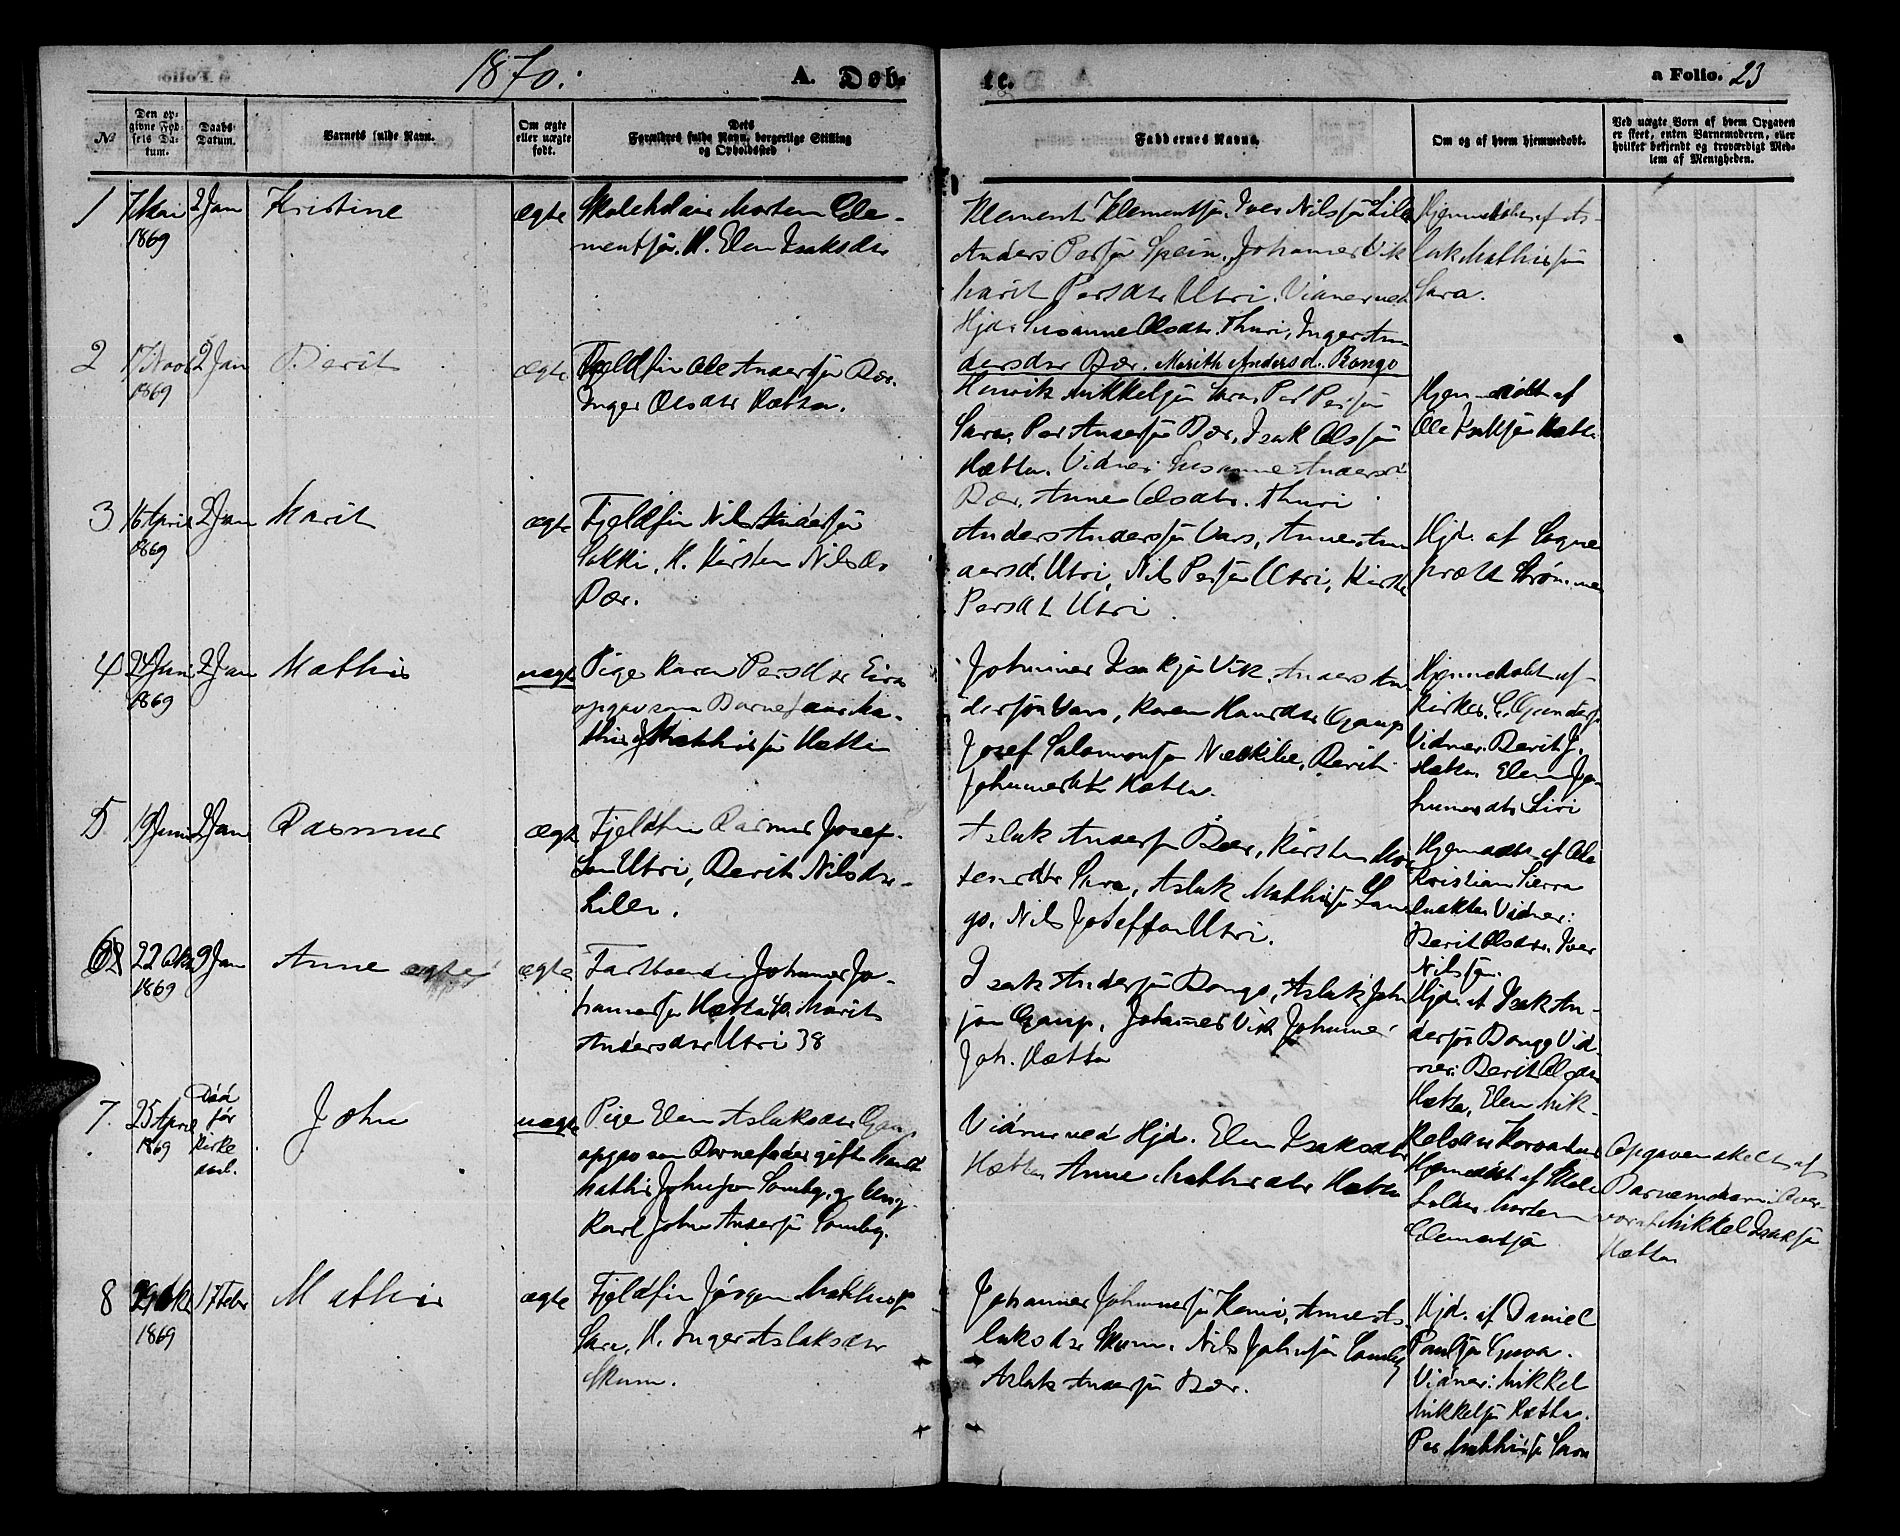 1870.
A. Døb-
te.
a Folio. 23
№
Den op-
givne Fød-
sels Da-
tum.
Daabs-
Datum.
Barnets fulde Navn.
Om ægte
eller uægte
født.
Dets
Forældres fulde Navn, borgerlige Stilling
og Opholdssted
Faddernes Navne.
Om og af hvem hjemmedøbt.
Ved uægte Børn af hvem Opgaven
er skeet, enten Barnemoderen, eller
hvilket bekjendt og troværdigt Med-
lem af Menigheden.
1
1869
2 Jan
Kristine
ægte
Morten Cle-
mentsøn. H. Elen Isaksdtr
Klement Klementsøn. Iver Nilssøn Lile
Anders Persøn Spein, Johannes Vik
Marit Persdtr Utri. Vidner ved
Hjd. Susanne Olsdtr. Thuri, Inger An-
dersdtr Bær. Marith Andersd. Bongo
Hjemmedøbt af As-
lak Mathissøn
Sara.
2
17 Nov
1869
2 Jan
Berit
ægte
Fjeldfin Ole Anderssøn Bær.
Inger Olsdtr Hætta.
Henrik Mikkelsøn Sara, Per Persøn
Sara, Per Anderssøn Bær, Isak Olssøn
Hætta. Vidner: Susanne Andersd.
Bær. Anne Olsdtr. Thuri
Hjemmedøbt af
Ole Isaksøn Hætta
3
16 April
1869
2 Jan
Marit
ægte
Fjeldfin Nils Anderssøn
Sokki. H. Kirsten Nilsd.
Bær.
Anders Anderssøn Vars, Anne An-
dersd. Utri, Nils Persøn Utri, Kirste
Persdt Utri
Hjd. af Sogne
præst Strømme
4
24 Juni
1869
2 Jan
Mathis
uægte
Pige Karen Persdtr Eira
opgav som Barnefader Ma-
this Mathissøn Hætta
Johannes Isaksøn Vik. Anders An-
derssøn Vars, Karen Gaup
Josef Salomonsøn Nækkile, Berit
Johannesdtr Hætta.
Hjemmedøbt af
Kirkes. C. Gundersø
Vidner. Berit J.
Hætta Elen Jo-
hannesdtr Siri
5
19 Juni
2 Jan
Rasmus
ægte
Fjeldfin Rasmus Josef-
søn Utri, Berit Nilsdtr
Lile.
Aslak Anderssøn Bær, Kirsten Mor
tensdtr Sara, Aslak Mathissøn Lan
go. Nils Josefson Utri.
Hjemdøbt af Ole
Kristian Sierra
Vidner:
Berit Olsdtr. Iver
Nilssøn.
6
22 Okt
1869
9 Jan
Anne ægte
ægte
Fastboende Johannes Jo-
hannessøn Hætta 40. Marit
Andersdtr Utri 38
Isak Anderssøn Bongo, Aslak John
søn Gaup, Johannes Vik Johannes
Joh. Hætta
Hjd. af Isak An-
derssøn Bongo Vid-
ner: Berit Olsdtr
Hætta, Elen Mik-
kelsdtr
7.
25 April
1869
Død
før
Kirke
Johs
uægte
Pige Elen Aslaksdtr Gaup
opgav som Barnefader gifte Mand
Mathis Johnsøn Somby, og Ung-
karl John Anderssøn Somby.
Vidner ved Hjd. Elen Isaksdtr
Hætta Anne Mathisdtr Hætta
Hjemdøbt af Skole
holder Morten
Clementsøn
Opgaven skeet af
Barnemoderen i Over-
vær af Mikkel Isaksøn
Hætta
8
29 Okt
1869
17 Febr
Mathis
ægte
Fjeldfin Jørgen Mathissø
Sara, H. Inger Aslaksdtr
Skum.
Johannes Johannessøn Kemi, Anne As-
laksdtr Skum. Nils Johnsøn Somby
Aslak Anderssøn Bær.
Hjd. af Daniel
Poulsøn
Vidner: Mikkel
Mikkelsøn Hætta.
Per Mathissøn Sara